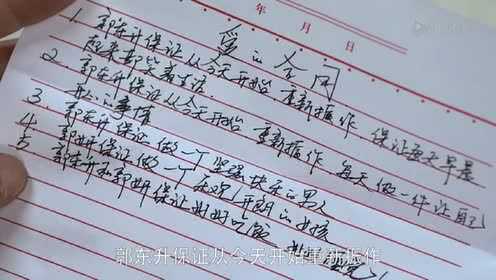 年 月 日
爱的合同
1. 郭东升保证从今天开始,重新振作,保证每天早晨
起来都笑着生活.
2. 郭东升保证从今天开始,重新振作,每天做一件让自己
开心的事情
3. 郭东升保证做一个坚强快乐的男人
4. 郭妍保证做一个乐观开朗的女孩
5 郭东升和郭妍保证好好吃饭
郭东升保证从今天开始重新振作